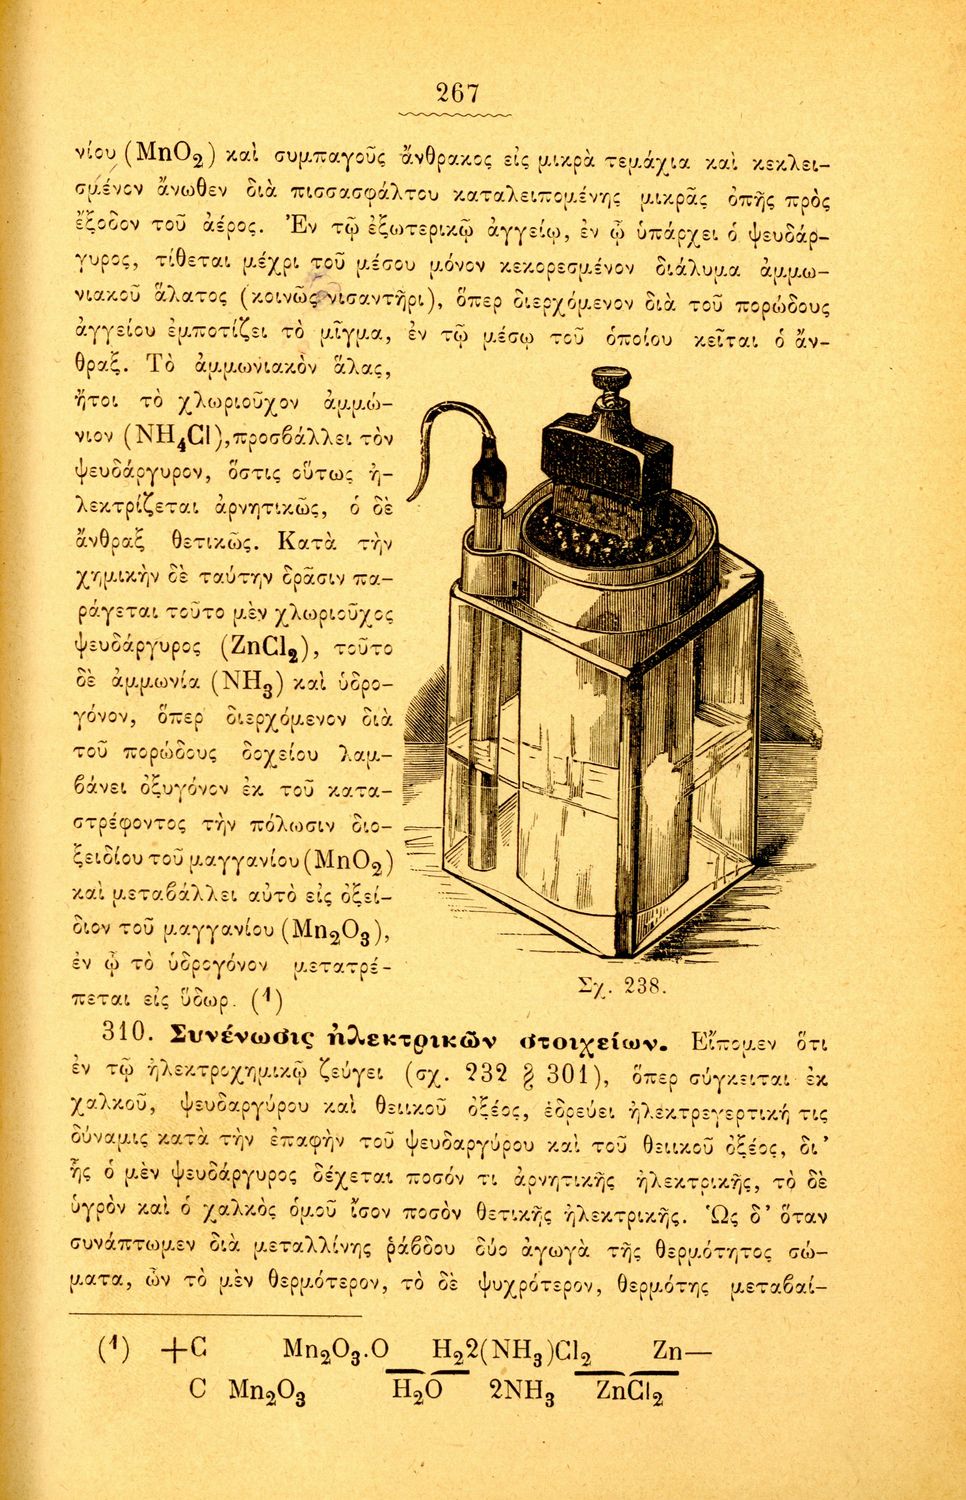 267
νίου (MnO₂) καὶ συμπαγοῦς ἄνθρακος εἰς μικρὰ τεμάχια καὶ κεκλει-
σμένον ἄνωθεν διὰ πισσασφάλτου καταλειπομένης μικρᾶς ὀπῆς πρὸς
ἔξοδον τοῦ ἀέρος. Ἐν τῷ ἐξωτερικῷ ἀγγείῳ, ἐν ᾧ ὑπάρχει ὁ ψευδάρ-
γυρος, τίθεται μέχρι τοῦ μέσου μόνον κεκορεσμένον διάλυμα ἀμμω-
νιακοῦ ἅλατος (κοινῶς νισαντῆρι), ὅπερ διερχόμενον διὰ τοῦ πορώδους
ἀγγείου ἐμποτίζει τὸ μῖγμα, ἐν τῷ μέσῳ τοῦ ὁποίου κεῖται ὁ ἄν-
θραξ. Τὸ ἀμμωνιακὸν ἅλας,
ἤτοι τὸ χλωριοῦχον ἀμμώ-
νιον (NH₄Cl), προσβάλλει τὸν
ψευδάργυρον, ὅστις οὕτως ἠ-
λεκτρίζεται ἀρνητικῶς, ὁ δὲ
ἄνθραξ θετικῶς. Κατὰ τὴν
χημικὴν δὲ ταύτην δρᾶσιν πα-
ράγεται τοῦτο μὲν χλωριοῦχος
ψευδάργυρος (ZnCl₂), τοῦτο
δὲ ἀμμωνία (NH₃) καὶ ὑδρο-
γόνον, ὅπερ διερχόμενον διὰ
τοῦ πορώδους δοχείου λαμ-
βάνει ὀξυγόνον ἐκ τοῦ κατα-
στρέφοντος τὴν πόλωσιν διο-
ξειδίου τοῦ μαγγανίου (MnO₂)
καὶ μεταβάλλει αὐτὸ εἰς ὀξεί-
διον τοῦ μαγγανίου (Mn₂O₃),
ἐν ᾧ τὸ ὑδρογόνον μετατρέ-
πεται εἰς ὕδωρ. (1)
Σχ. 238.
310. Συνένωσις ἠλεκτρικῶν στοιχείων. Εἴπομεν ὅτι
ἐν τῷ ἠλεκτροχημικῷ ζεύγει (σχ. 232 § 301), ὅπερ σύγκειται ἐκ
χαλκοῦ, ψευδαργύρου καὶ θειικοῦ ὀξέος, ἑδρεύει ἠλεκτρεγερτική τις
δύναμις κατὰ τὴν ἐπαφὴν τοῦ ψευδαργύρου καὶ τοῦ θειικοῦ ὀξέος, δι'
ἧς ὁ μὲν ψευδάργυρος δέχεται ποσόν τι ἀρνητικῆς ἠλεκτρικῆς, τὸ δὲ
ὑγρὸν καὶ ὁ χαλκὸς ὁμοῦ ἴσον ποσὸν θετικῆς ἠλεκτρικῆς. Ὡς δ' ὅταν
συνάπτωμεν διὰ μεταλλίνης ῥάβδου δύο ἀγωγὰ τῆς θερμότητος σώ-
ματα, ὧν τὸ μὲν θερμότερον, τὸ δὲ ψυχρότερον, θερμότης μεταβαί-
(1) +C Mn₂O₃.O H₂2(NH₃)Cl₂ Zn—
C Mn₂O₃ H₂O 2NH₃ ZnCl₂